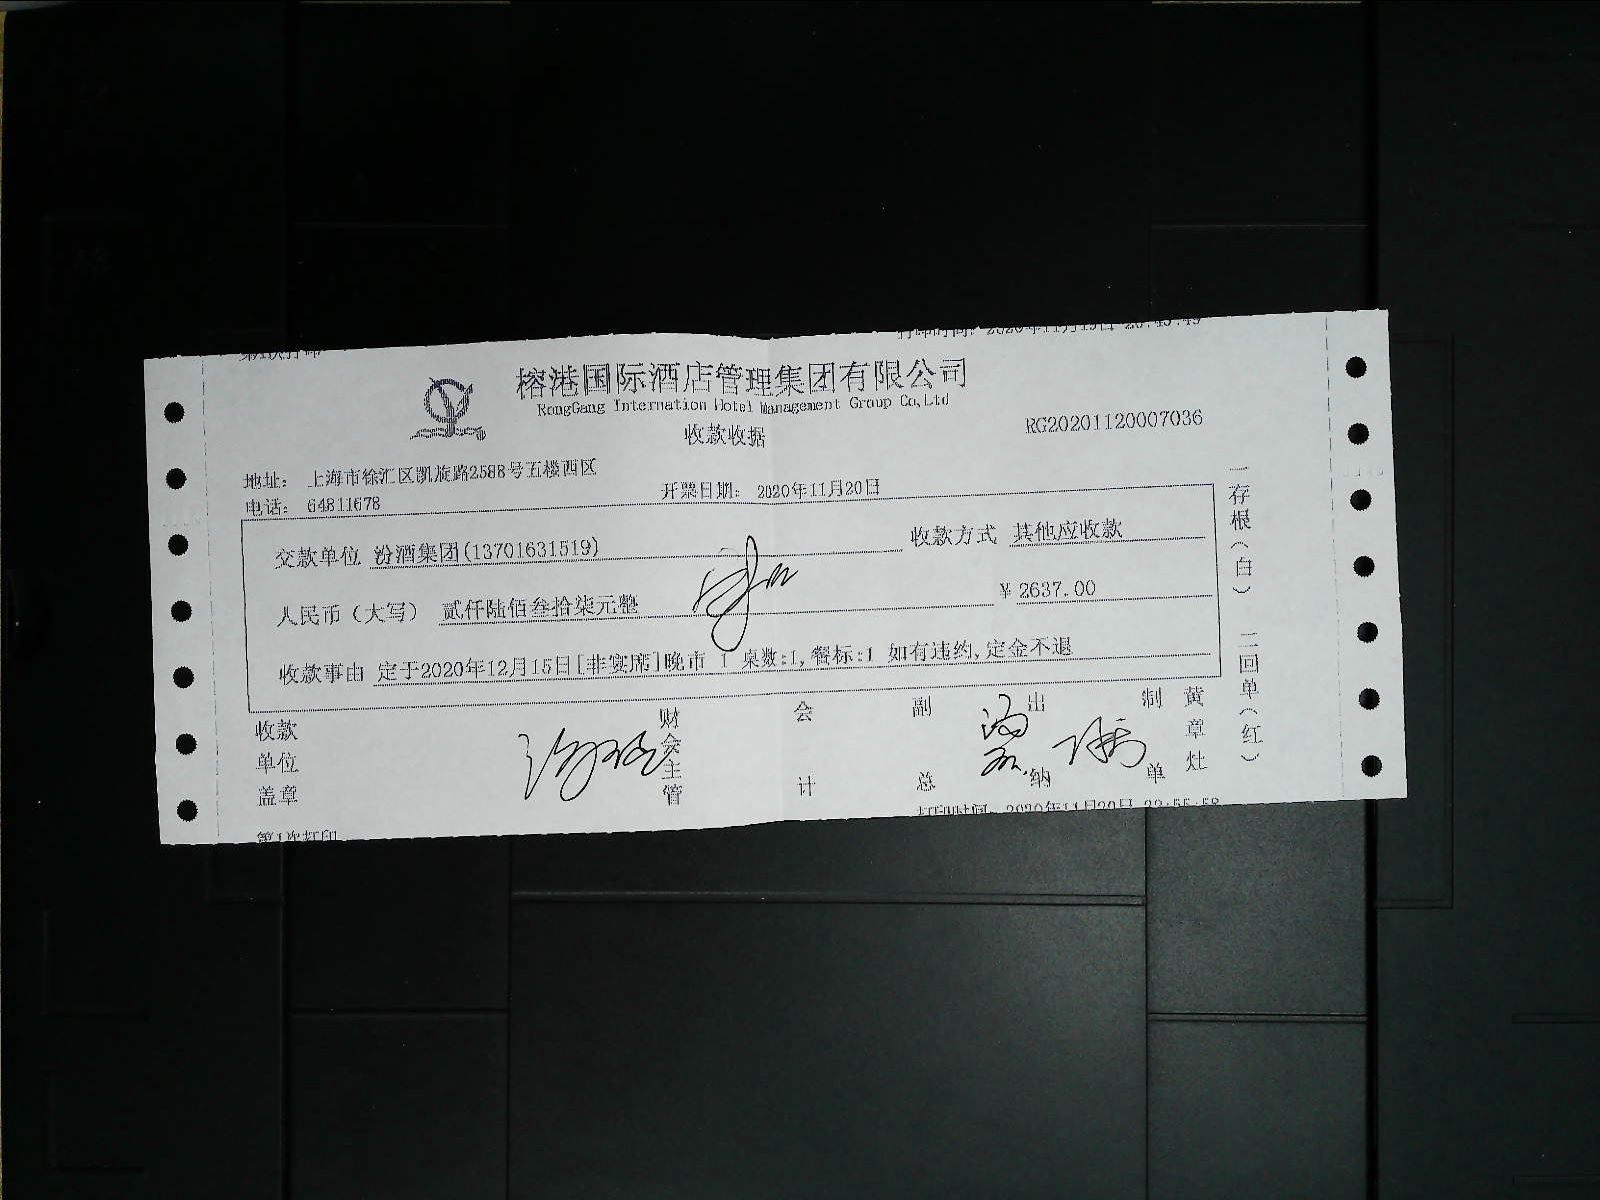 打印时间: 2020年11月19日 20:45:49
榕港国际酒店管理集团有限公司
RongGang Internation Hotel Management Group Co,Ltd
收款收据
RG20201120007036
地址: 上海市徐汇区凯旋路2588号五楼西区
电话: 64811678
开票日期: 2020年11月20日
交款单位 汾酒集团(13701631519)
收款方式 其他应收款
人民币（大写） 贰仟陆佰叁拾柒元整
¥ 2637.00
收款事由 定于2020年12月15日[非宴席]晚市 1 桌数:1,餐标:1 如有违约,定金不退
收款单位盖章
财会主管
会计
副总
出纳
制单
黄章灶
一存根(白)
二回单(红)
第1次打印
打印时间: 2020年11月20日 22:55:58